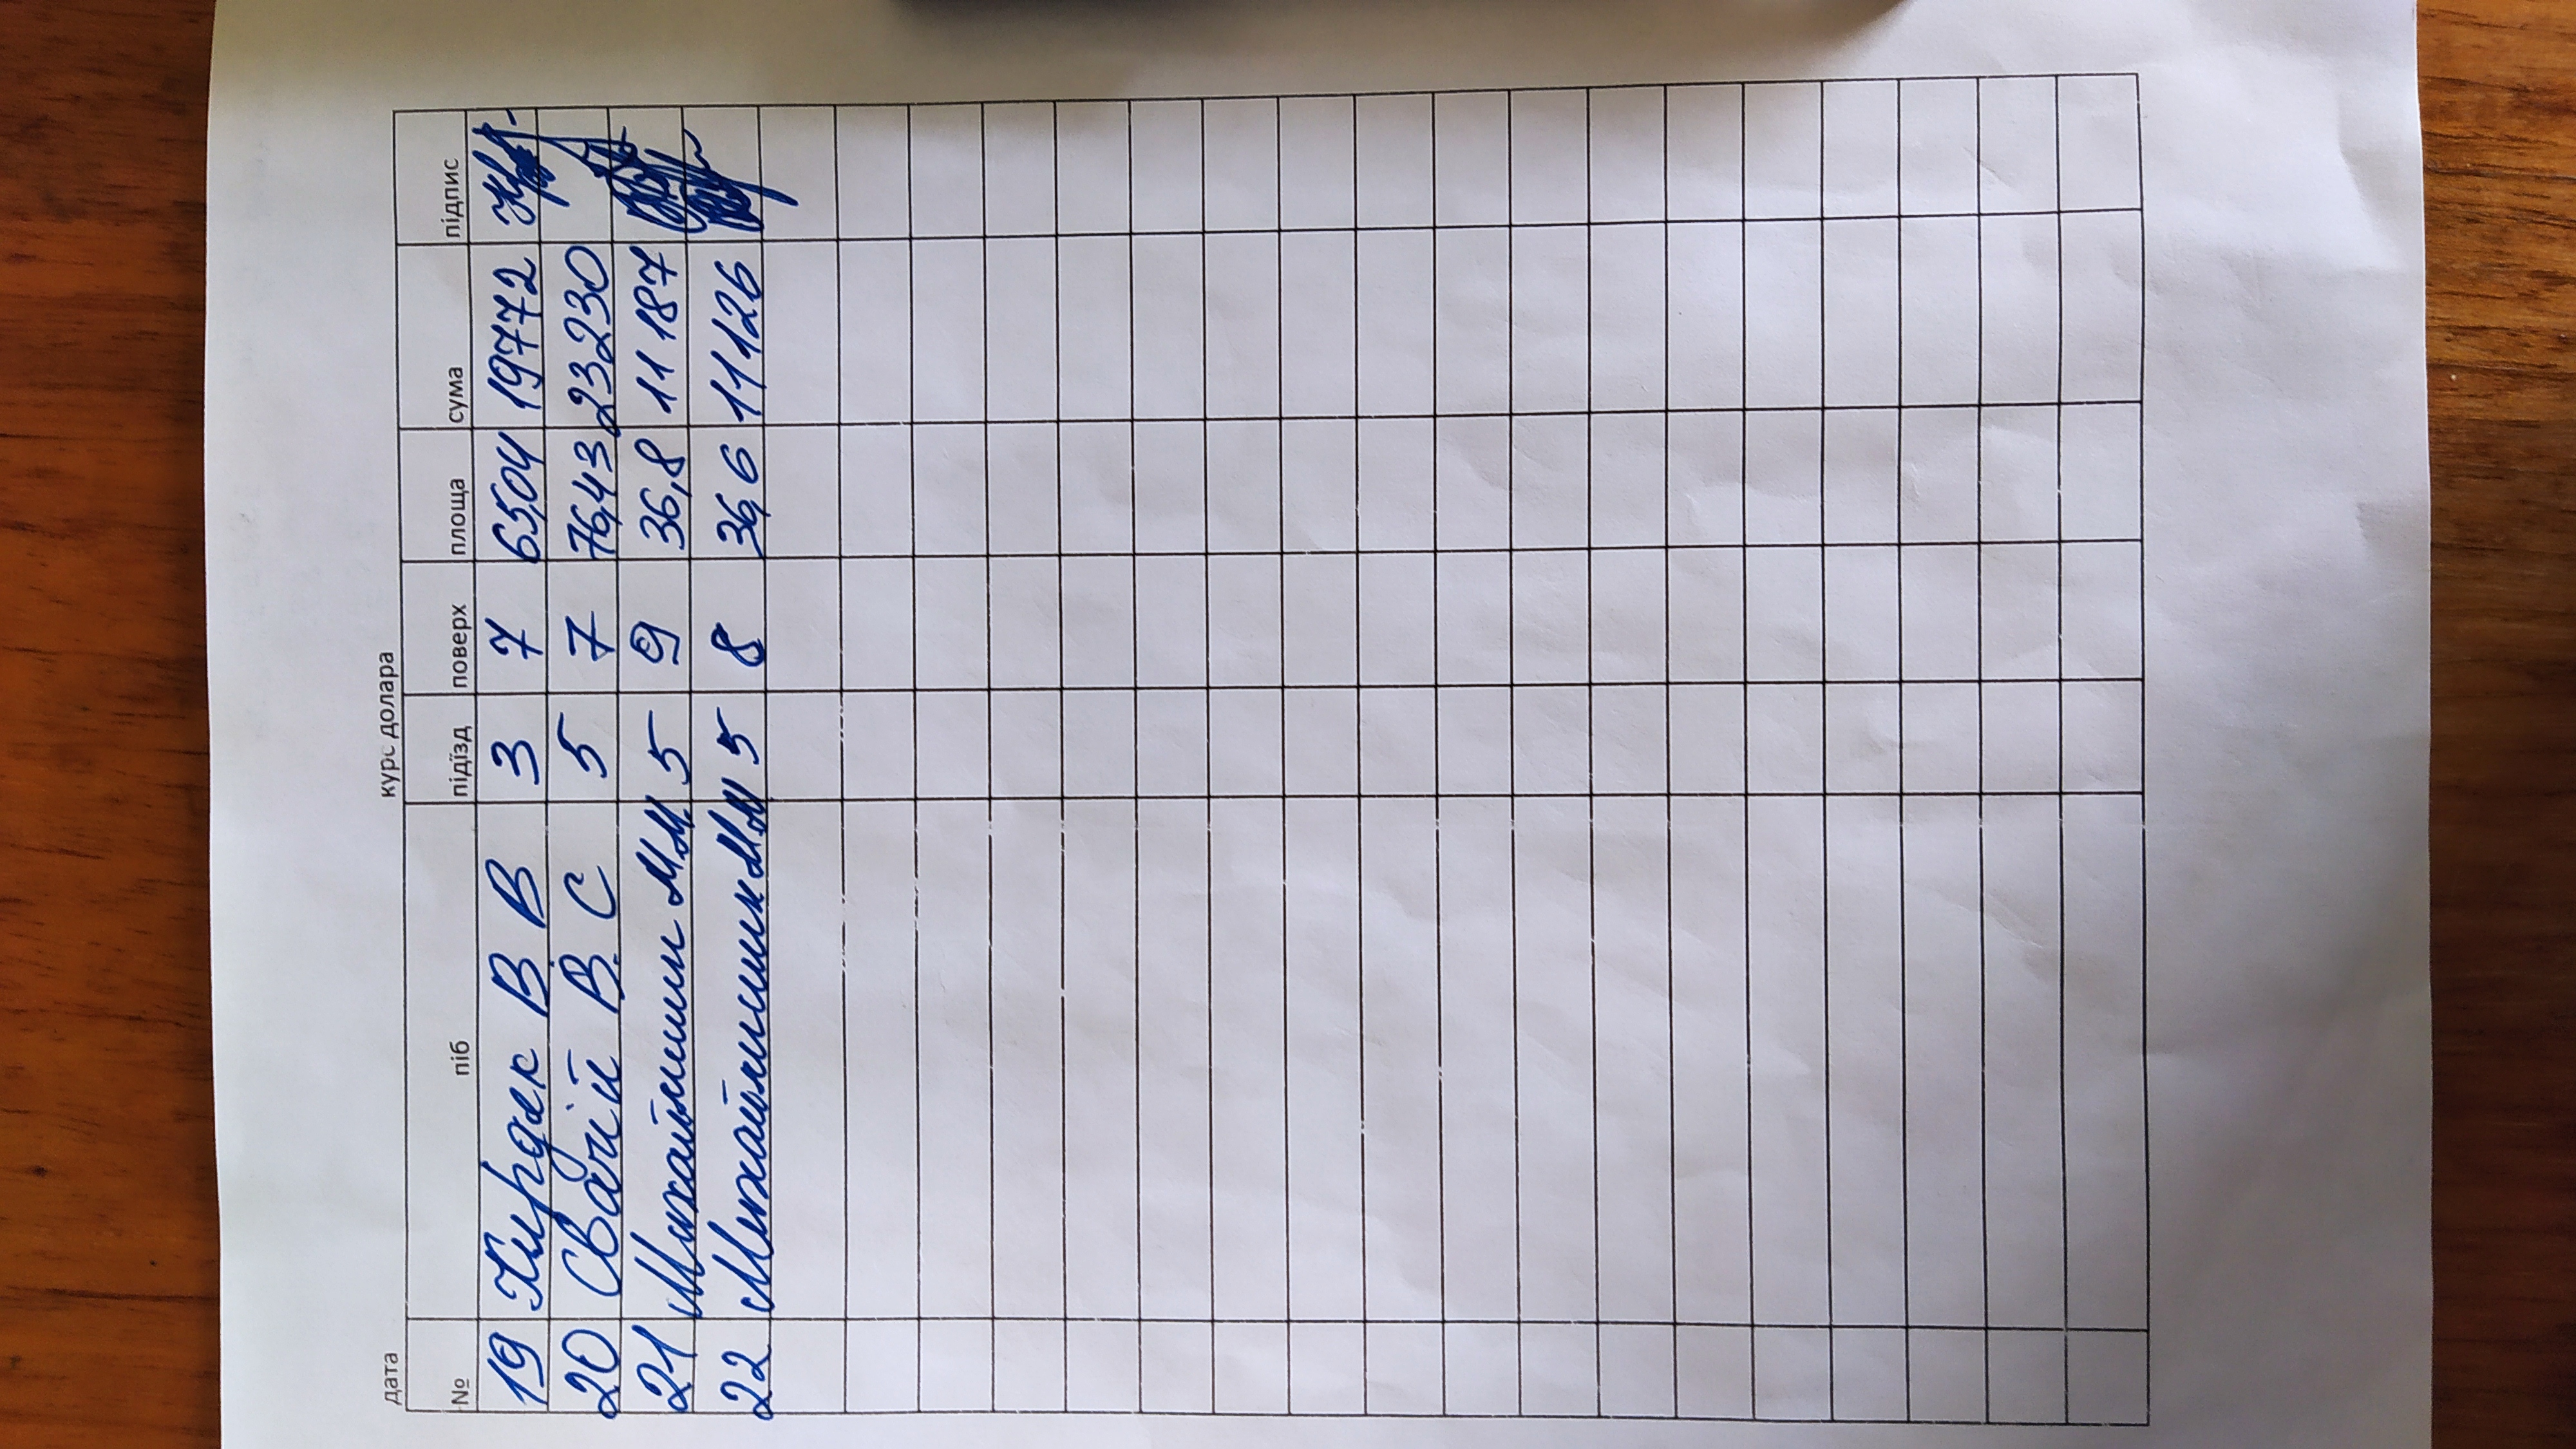 дата курс долара
№ піб підїзд поверх площа сума підпис
19 Кирдяк В. В 3 7 65,04 19772
20 Свачій В. С 5 7 76,43 23230
21 Михайлишин М.М. 5 9 36,8 11 187
22 Михайлишин М М 5 8 36,6 11126